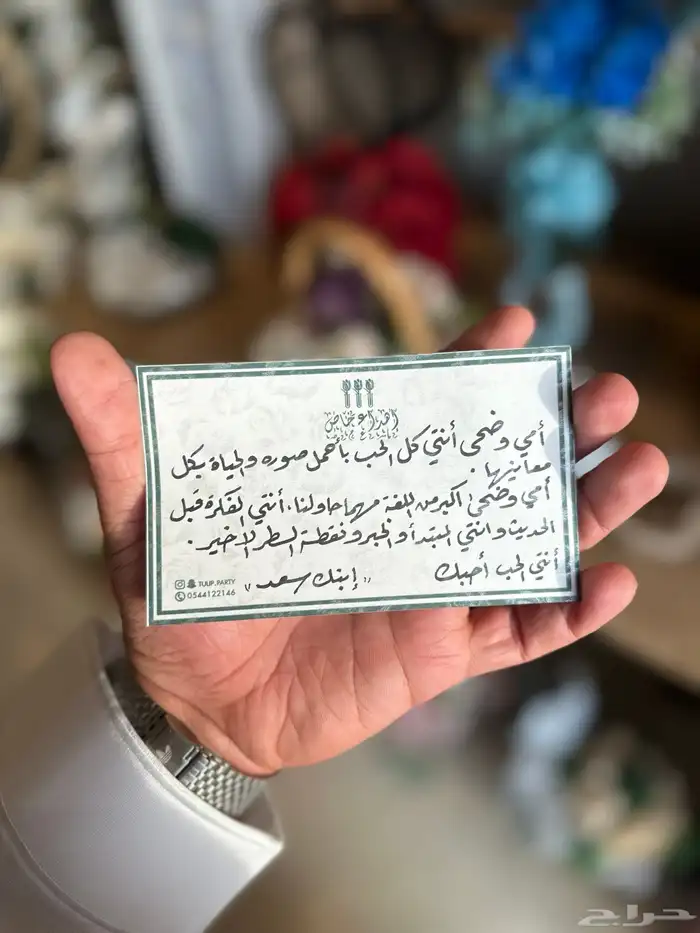 إهداء خاص
أمي وضحى أنتي كل الحب بأجمل صوره والحياة بكل
معانيها .
أمي وضحى أكبر من اللغة مهما حاولنا . أنتي الفكرة قبل
الحديث وانتي المبتدأ والخبر ونقطة السطر الاخير .
أنتي الحب أحبك
"إبنك سعد"
TUUP.PARTY
0544122146
حراج